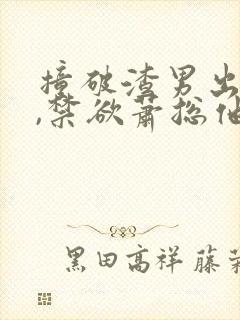 撞破渣男出
,禁欲萧总他
黑田高祥 藤